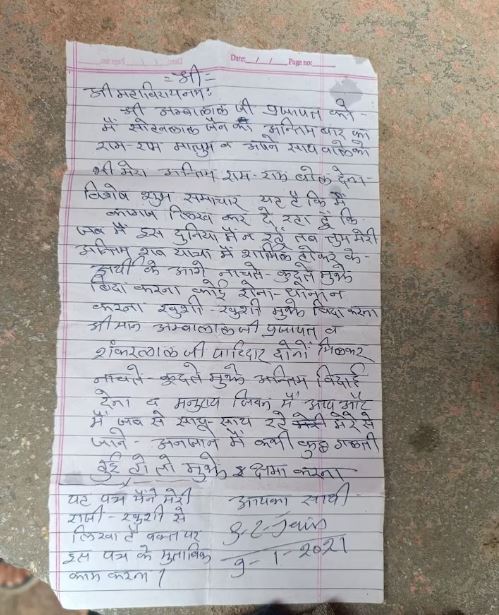 Date: / / Page no:
=श्री=
श्री महावीरायनमः
श्री अम्बालाल जी प्रजापत को-
मैं सोहनलाल जैन की अन्तिम बार का
राम-राम मालुम व अपने साथ वालो को
भी मेरा अन्तिम राम-राम बोल देना-
विशेष शुभ समाचार यह है कि मैं
कागज लिख कर दे रहा हूँ कि
जब मैं इस दुनिया में न रहूँ तब तुम मेरी
अन्तिम शव यात्रा में शामिल होकर के-
अर्थी के आगे नाचते-कूदते मुझे
बिदा करना कोई रोना-धोना न
करना खुशी-खुशी मुझे बिदा करना
श्रीमान अम्बालालजी प्रजापत व
शंकरलाल जी पाटिदार दोनों मिलकर
नाचते-कूदते मुझे अन्तिम विदाई
देना व मनुष्य जिवन में आप और
मैं जब से साथ-साथ रहे मेरे से
जाने-अनजान में कभी कुछ गलती
हुई हो तो मुझे क्षमा करना
यह पत्र मैंने मेरी
राजी-खुशी से
लिखा है वक्त पर
इस पत्र के मुताबिक
काम करना।
आपका साथी
S. L. Jain
9-1-2021